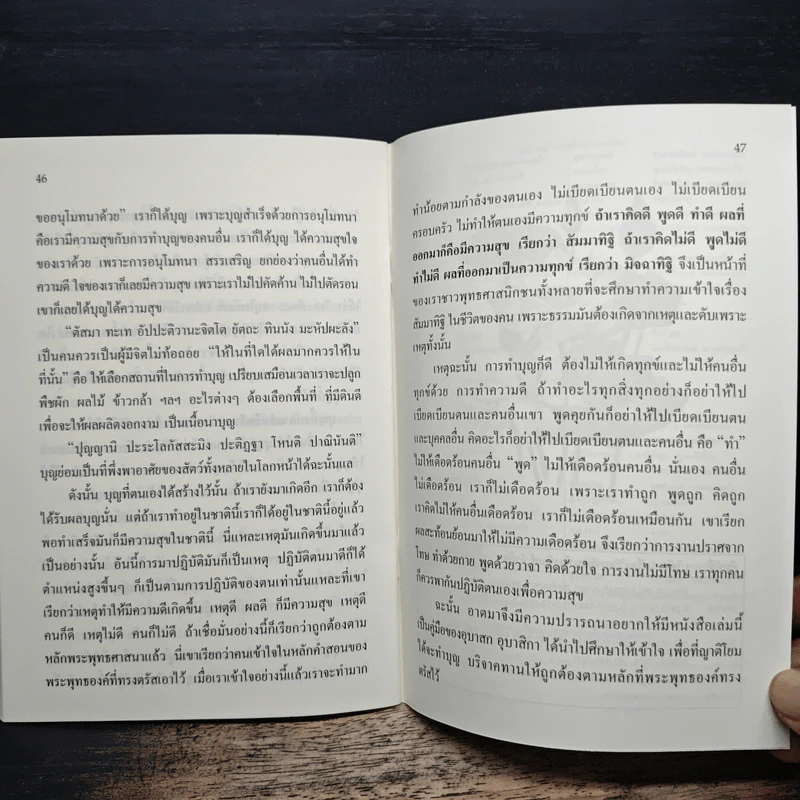 46
ขออนุโมทนาด้วย” เราก็ได้บุญ เพราะบุญสำเร็จด้วยการอนุโมทนา
คือเรามีความสุขกับการทำบุญของคนอื่น เราก็ได้บุญ ได้ความสุขใจ
ของเราด้วย เพราะการอนุโมทนา สรรเสริญ ยกย่องว่าคนอื่นได้ทำ
ความดี ใจของเราก็เลยมีความสุข เพราะเราไม่ไปคัดค้าน ไม่ไปตัดรอน
เขาก็เลยได้บุญได้ความสุข
“ตัสมา ทะเท อัปปะติวานะจิตโต ยัตถะ ทินนัง มะหัปผะลัง”
เป็นคนควรเป็นผู้มีจิตไม่ท้อถอย “ให้ในที่ใดได้ผลมากควรให้ใน
ที่นั้น” คือ ให้เลือกสถานที่ในการทำบุญ เปรียบเสมือนเวลาเราจะปลูก
พืชผัก ผลไม้ ข้าวกล้า ฯลฯ อะไรต่างๆ ต้องเลือกพื้นที่ ที่มีดินดี
เพื่อจะให้ผลผลิตงอกงาม เป็นเนื้อนาบุญ
“ปุญญานิ ปะระโลกัสสะมิง ปะติฏฐา โหนติ ปาณินันติ”
บุญย่อมเป็นที่พึ่งพาอาศัยของสัตว์ทั้งหลายในโลกหน้าได้ฉะนั้นแล
ดังนั้น บุญที่ตนเองได้สร้างไว้นั้น ถ้าเรายังมาเกิดอีก เราก็ต้อง
ได้รับผลบุญนั่น แต่ถ้าเราทำอยู่ในชาตินี้เราก็ได้อยู่ในชาตินี้อยู่แล้ว
พอทำเสร็จมันก็มีความสุขในชาตินี้ นี่แหละเหตุมันเกิดขึ้นมาแล้ว
เป็นอย่างนั้น อันนี้การมาปฏิบัติมันก็เป็นเหตุ ปฏิบัติตนมาดีก็ได้
ตำแหน่งสูงขึ้นๆ ก็เป็นตามการปฏิบัติของตนเท่านั้นแหละที่เขา
เรียกว่าเหตุทำให้มีความดีเกิดขึ้น เหตุดี ผลดี ก็มีความสุข เหตุดี
คนก็ดี เหตุไม่ดี คนก็ไม่ดี ถ้าเชื่อมั่นอย่างนี้ก็เรียกว่าถูกต้องตาม
หลักพระพุทธศาสนาแล้ว นี่เขาเรียกว่าคนเข้าใจในหลักคำสอนของ
พระพุทธองค์ที่ทรงตรัสเอาไว้ เมื่อเราเข้าใจอย่างนี้แล้วเราจะทำมาก
47
ทำน้อยตามกำลังของตนเอง ไม่เบียดเบียนตนเอง ไม่เบียดเบียน
ครอบครัว ไม่ทำให้ตนเองมีความทุกข์ ถ้าเราคิดดี พูดดี ทำดี ผลที่
ออกมาก็คือมีความสุข เรียกว่า สัมมาทิฐิ ถ้าเราคิดไม่ดี พูดไม่ดี
ทำไม่ดี ผลที่ออกมาเป็นความทุกข์ เรียกว่า มิจฉาทิฐิ จึงเป็นหน้าที่
ของเราชาวพุทธศาสนิกชนทั้งหลายที่จะศึกษาทำความเข้าใจเรื่อง
สัมมาทิฐิ ในชีวิตของคน เพราะธรรมมันต้องเกิดจากเหตุและดับเพราะ
เหตุทั้งนั้น
เหตุฉะนั้น การทำบุญก็ดี ต้องไม่ให้เกิดทุกข์และไม่ให้คนอื่น
ทุกข์ด้วย การทำความดี ถ้าทำอะไรทุกสิ่งทุกอย่างก็อย่าให้ไป
เบียดเบียนตนและคนอื่นเขา พูดคุยกันก็อย่าให้ไปเบียดเบียนตน
และบุคคลอื่น คิดอะไรก็อย่าให้ไปเบียดเบียนตนและคนอื่น คือ “ทำ”
ไม่ให้เดือดร้อนคนอื่น “พูด” ไม่ให้เดือดร้อนคนอื่น นั่นเอง คนอื่น
ไม่เดือดร้อน เราก็ไม่เดือดร้อน เพราะเราทำถูก พูดถูก คิดถูก
เราคิดไม่ให้คนอื่นเดือดร้อน เราก็ไม่เดือดร้อนเหมือนกัน เขาเรียก
ผลสะท้อนย้อนมาให้ไม่มีความเดือดร้อน จึงเรียกว่าการงานปราศจาก
โทษ ทำด้วยกาย พูดด้วยวาจา คิดด้วยใจ การงานไม่มีโทษ เราทุกคน
ก็ควรพากันปฏิบัติตนเองเพื่อความสุข
ฉะนั้น อาตมาจึงมีความปรารถนาอยากให้มีหนังสือเล่มนี้
เป็นคู่มือของอุบาสก อุบาสิกา ได้นำไปศึกษาให้เข้าใจ เพื่อที่ญาติโยม
ได้จะทำบุญ บริจาคทานให้ถูกต้องตามหลักที่พระพุทธองค์ทรง
ตรัสไว้